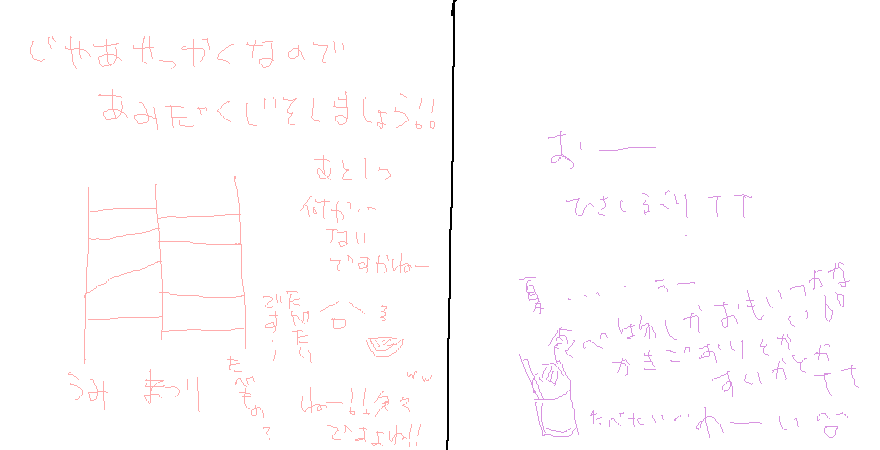 じゃあせっかくなので
あみだくじをしましょう!!
あと1つ
何がいー
ない
ですかねー
たべたい
です!
うみ
まつり
たべもの?
ねー!!久々
ww
ですよね!!
おー
ひさしぶりTT
夏....うー
たべものしかおもいつかない
かきごおりとか
すいかとか
TT
たべたい..わーい